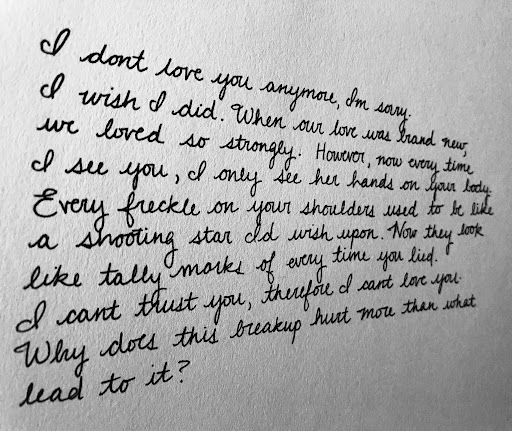 I dont love you anymore, Im sorry.
I wish I did. When our love was brand new,
we loved so strongly. However, now every time
I see you, I only see her hands on your body.
Every freckle on your shoulders used to be like
a shooting star Id wish upon. Now they look
like tally marks of every time you lied.
I cant trust you, therefore I cant love you.
Why does this breakup hurt more than what
lead to it?